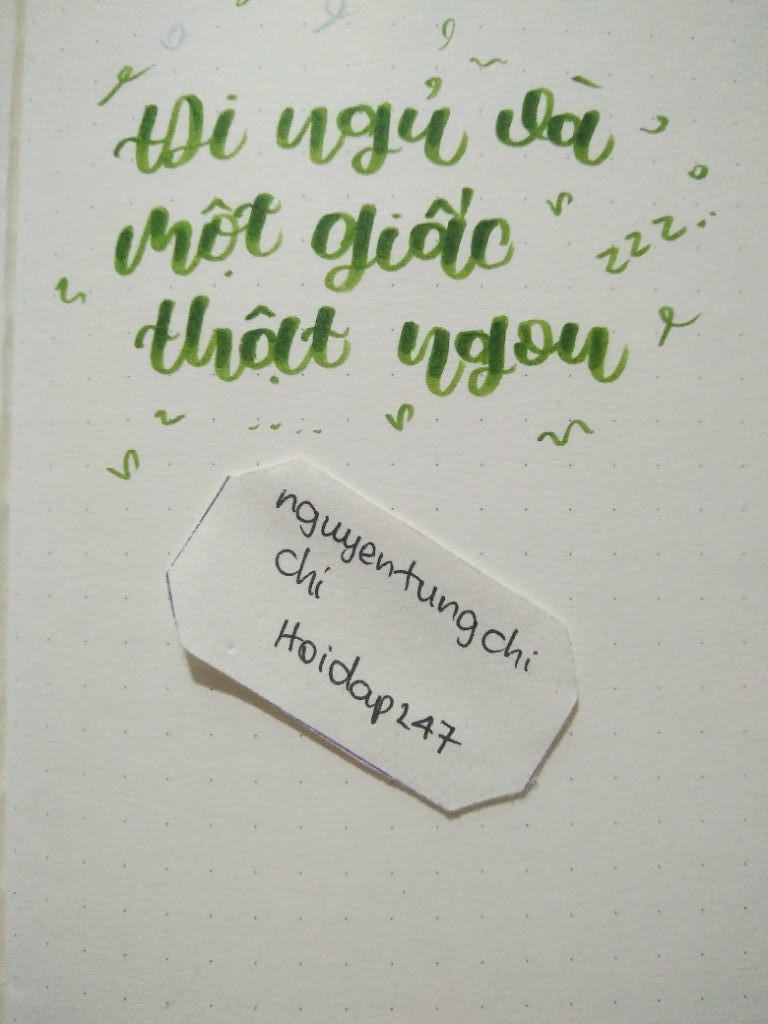 Đi ngủ và
một giấc
zzz...
thật ngon
nguyentungchi
chi
Hoidap247